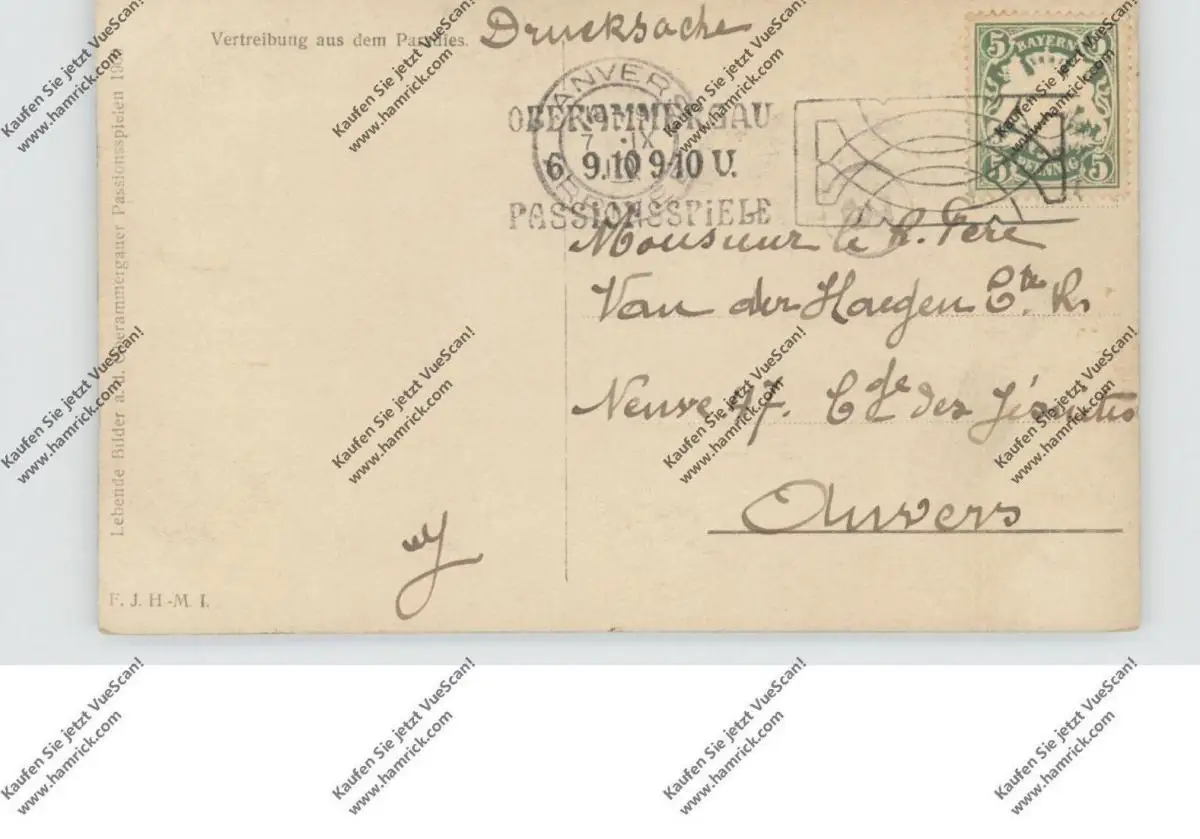 Vertreibung aus dem Paradies.
Drucksache
BAYERN
5 5
PFENNIG
5 5
ANVERS
7 IX
OBERAMMERGAU
6 9.10 9-10 U.
PASSIONSSPiELE
Monsieur le R. Père
Van der Haegen
Neuve 47. des Jésuites
Anvers
Lebende Bilder a. d. Oberammergauer Passionsspielen
F. J. H.-M. I.
Kaufen Sie jetzt VueScan!
www.hamrick.com
Kaufen Sie jetzt VueScan!
www.hamrick.com
Kaufen Sie jetzt VueScan!
www.hamrick.com
Kaufen Sie jetzt VueScan!
www.hamrick.com
Kaufen Sie jetzt VueScan!
www.hamrick.com
Kaufen Sie jetzt VueScan!
www.hamrick.com
Kaufen Sie jetzt VueScan!
www.hamrick.com
Kaufen Sie jetzt VueScan!
www.hamrick.com
Kaufen Sie jetzt VueScan!
www.hamrick.com
Kaufen Sie jetzt VueScan!
www.hamrick.com
Kaufen Sie jetzt VueScan!
www.hamrick.com
Kaufen Sie jetzt VueScan!
www.hamrick.com